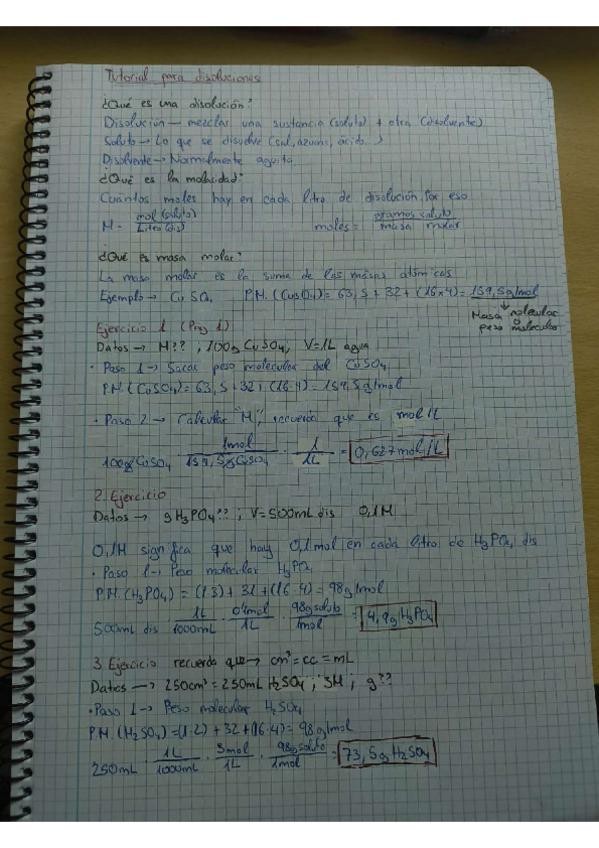 Tutorial para disoluciones
¿Qué es una disolución?
Disolución — mezclar una sustancia (soluto) + otra (disolvente)
Soluto → Lo que se disuelve (sal, azucar, ácido..)
Disolvente → Normalmente aguita
¿Qué es la molaridad?
Cuántos moles hay en cada litro de disolución, por eso
M = mol (soluto) / Litro (dis) moles = gramos soluto / masa molar
¿Qué es masa molar?
La masa molar es la suma de las masas atómicas
Ejemplo → CuSO4 P.M. (CuSO4) = 63,5 + 32 + (16×4) = 159,5g/mol
Masa molecular
o
peso molecular
Ejercicio 1 (Pag 1)
Datos → M??, 100g CuSO4, V=1L agua
· Paso 1 → Sacas peso molecular del CuSO4
P.M. (CuSO4) = 63,5 + 32 + (16·4) = 159,5g/mol
· Paso 2 → Calcular "M", recuerda que es mol/L
100g CuSO4 · 1mol / 159,5g CuSO4 · 1 / 1L = 0,627mol/L
2. Ejercicio
Datos → g H3PO4??; V=500mL dis 0,1M
0,1M significa que hay 0,1 mol en cada litro de H3PO4 dis
· Paso 1 → Peso molecular H3PO4
P.M. (H3PO4) = (1·3) + 31 + (16·4) = 98g/mol
500mL dis · 1L / 1000mL · 0,1mol / 1L · 98g soluto / 1mol = 4,9g H3PO4
3. Ejercicio recuerda que → cm³ = cc = mL
Datos → 250cm³ = 250mL H2SO4; 3M; g??
· Paso 1 → Peso molecular H2SO4
P.M. (H2SO4) = (1·2) + 32 + (16·4) = 98g/mol
250mL · 1L / 1000mL · 3mol / 1L · 98g soluto / 1mol = 73,5g H2SO4